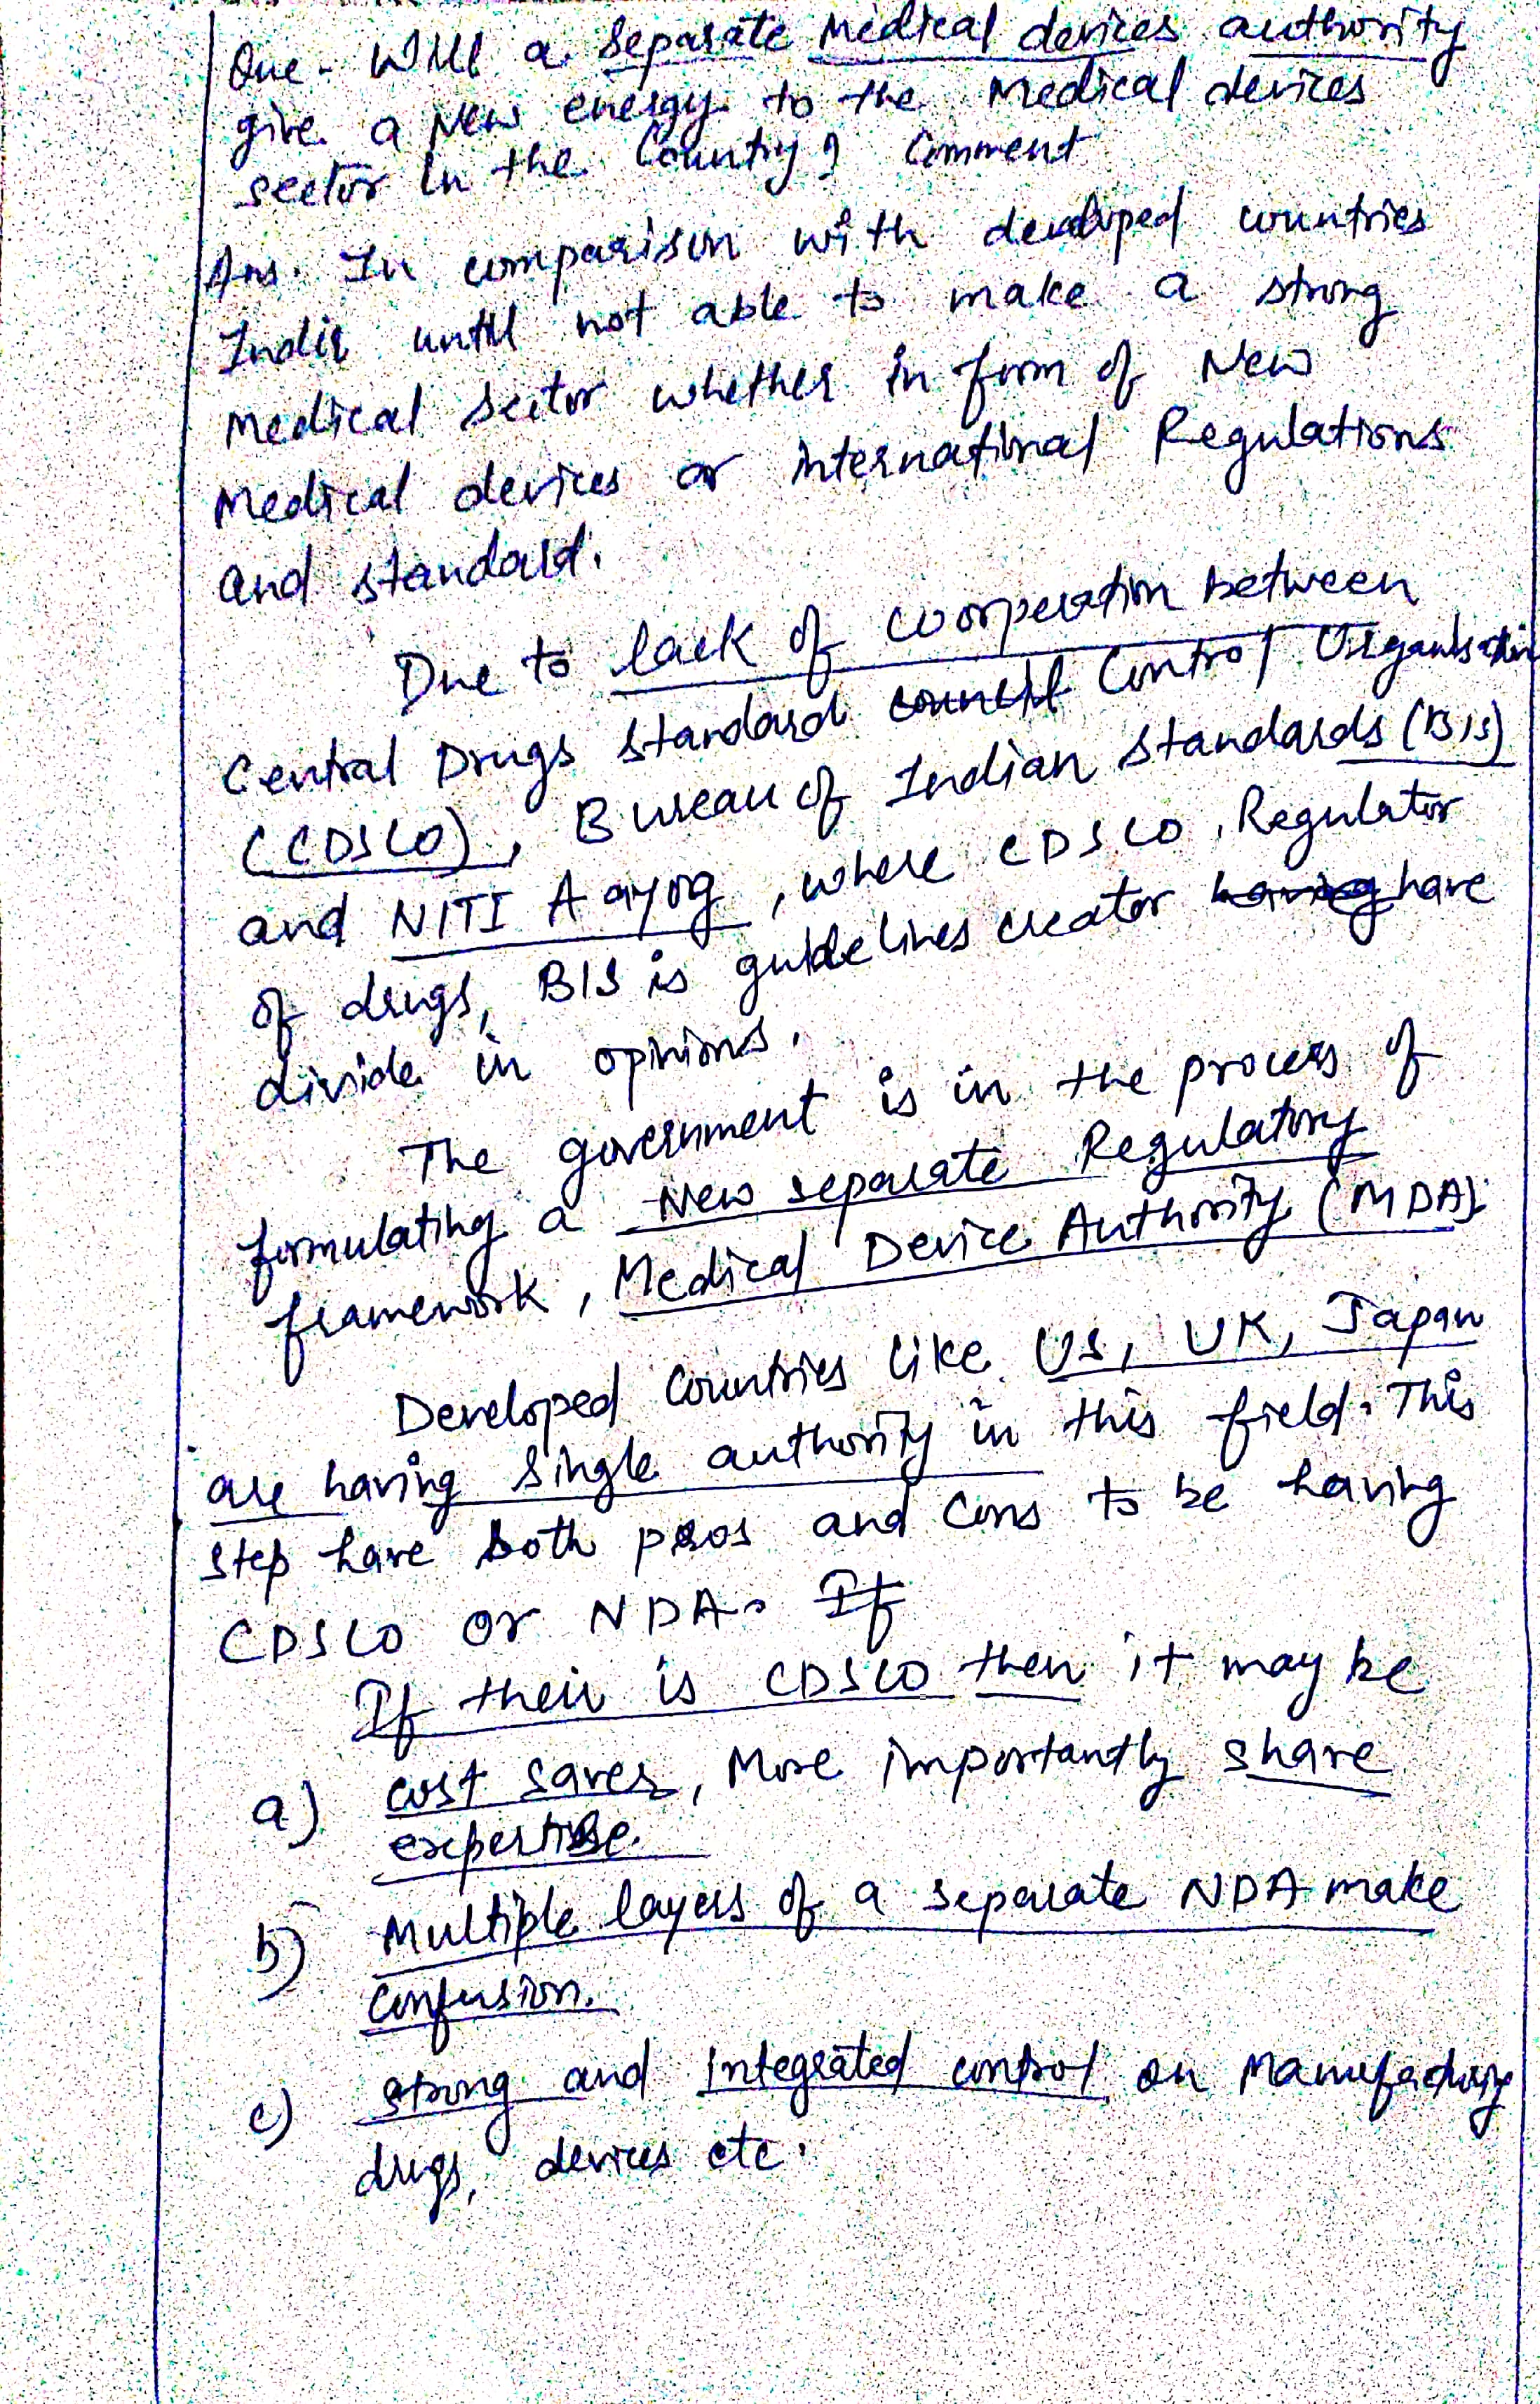 Que - Will a separate Medical devices authority
give a New energy to the Medical devices
sector in the Country? Comment
Ans. In comparison with developed countries
India until not able to make a strong
Medical sector whether in form of New
Medical devices or international Regulations
and standard.
Due to lack of coorperation between
Central Drugs standard council Control Organisation
(CDSCO), Bureau of Indian Standards (BIS)
and NITI Aayog, where CDSCO, Regulator
of drugs, BIS is guidelines creator having have
divide in opinions.
The government is in the process of
formulating a New separate Regulatory
framework, Medical Device Authority (MDA).
Developed Countries like US, UK, Japan
are having single authority in this field. This
step have both pros and cons to be having
CDSCO or NDA. If
If their is CDSCO then it may be
a) cost saves, More importantly share
expertise.
b) Multiple layers of a separate NDA make
confusion.
c) strong and integrated control on Manufacturing
drugs, devices etc.